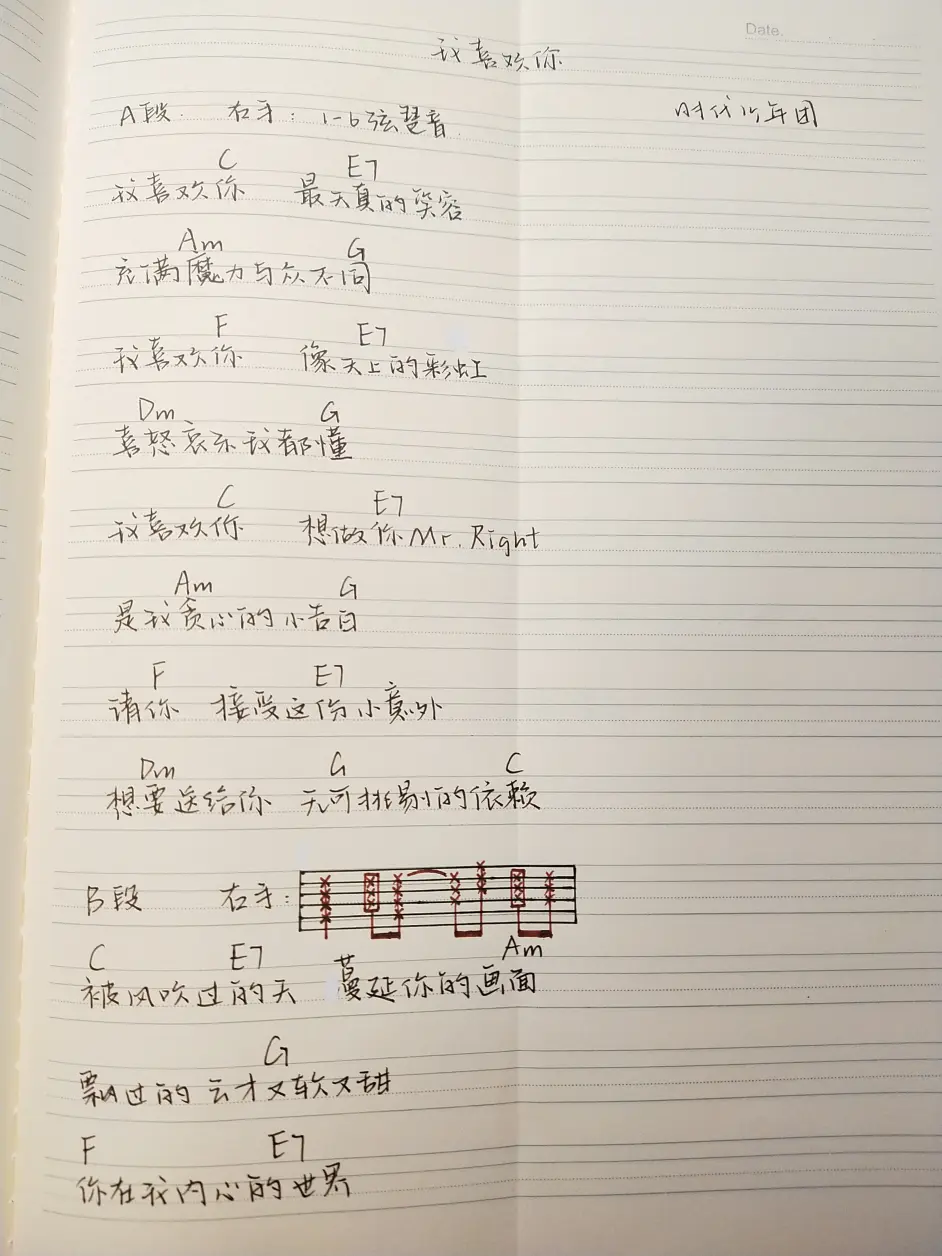 Date.
我喜欢你
A段 右手：1-6弦琶音
时代少年团
C E7
我喜欢你 最天真的笑容
Am G
充满魔力与众不同
F E7
我喜欢你 像天上的彩虹
Dm G
喜怒哀乐我都懂
C E7
我喜欢你 想做你Mr.Right
Am G
是我贪心的小告白
F E7
请你 接受这份小意外
Dm G C
想要送给你 无可挑剔的依赖
B段 右手：
C E7 Am
被风吹过的天 蔓延你的画面
G
飘过的云才又软又甜
F E7
你在我内心的世界